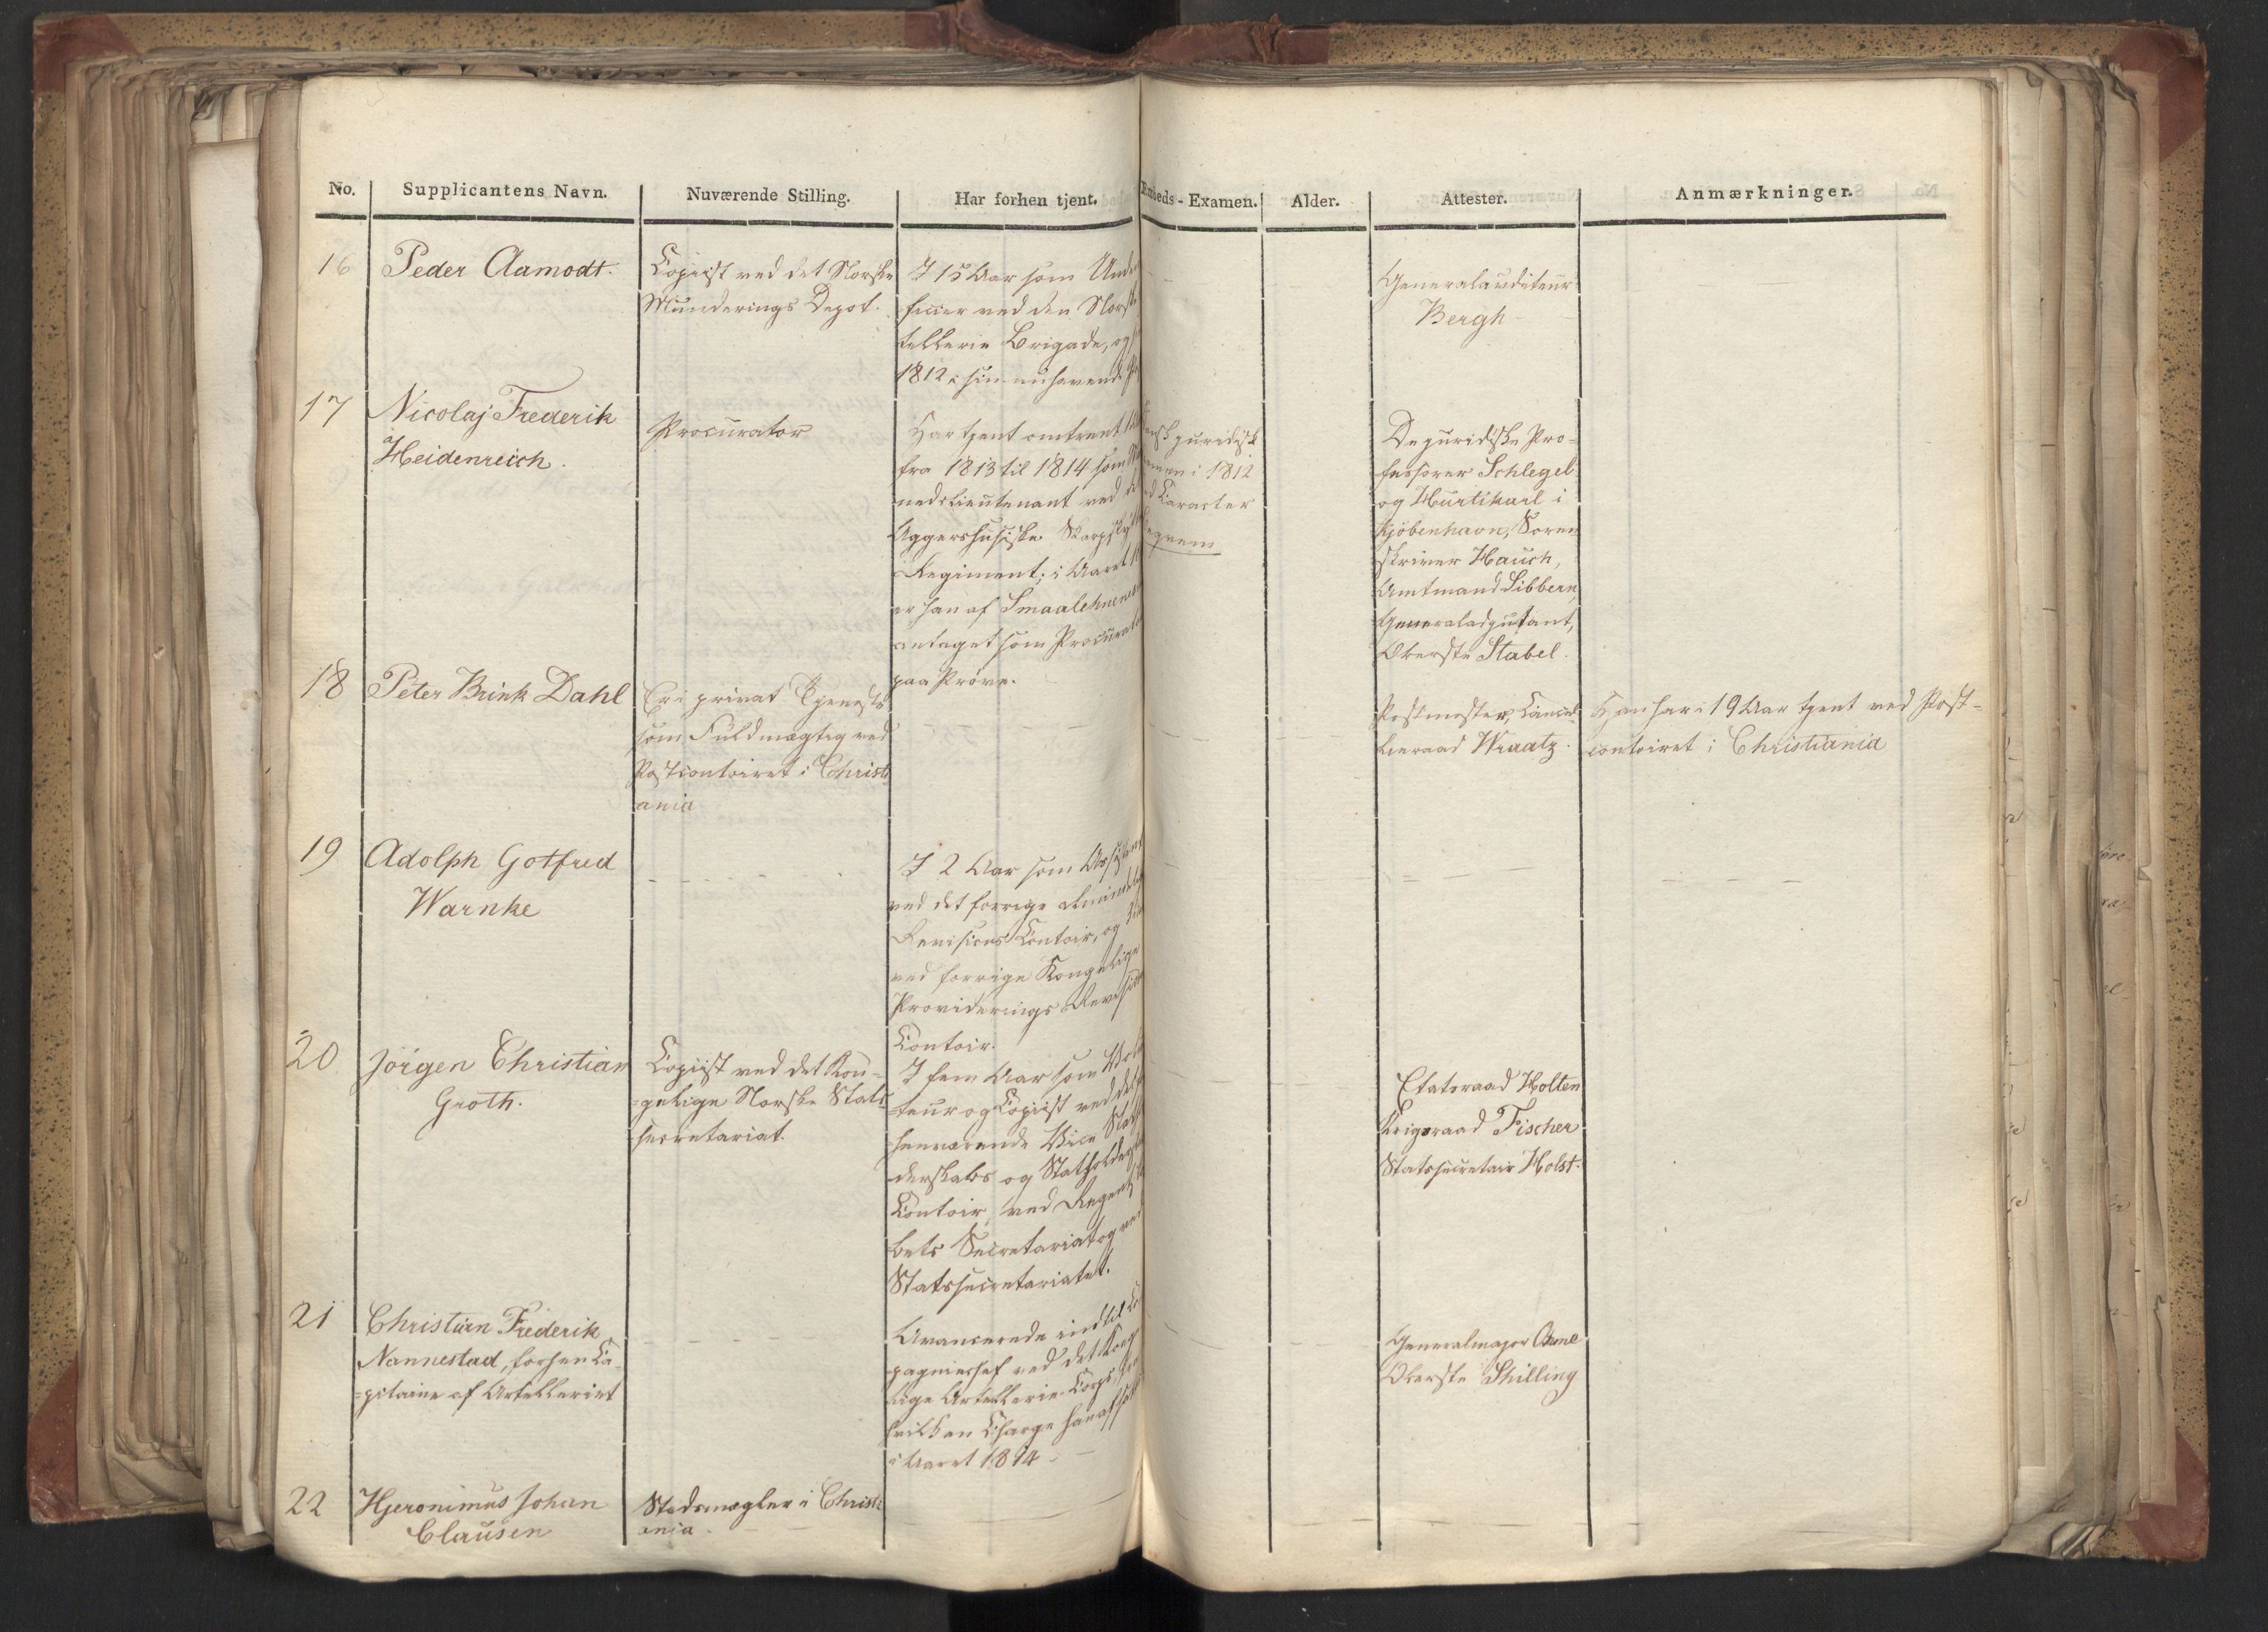 No. Supplicantens Navn. Nuværende Stilling. Har forhen tjent. Embeds-Examen. Alder. Attester. Anmærkninger.
16 Peder Aamodt.
Copiist ved det Norske
Munderings Depot.
I 15 Aar som Unde
ficier ved den Norsk
tellerie Brigade, og
1812 i sin nuhavende
Generalauditeur
Bergh
17 Nicolaj Frederik
Heidenreich.
Procurator
Har tjent omtrent
fra 1813 til 1814 som
nedslieutenant ved
Aggershusiske Skarpsky
Regiment; i Aaret
er han af Smaalehnenes
antaget som Procurato
paa Prøve.
ansk juridisk
amen i 1812
ed Caracter
egnem
De juridiske Pro-
fessorer Schlegel
og Hurtikarl i
Kjöbenhavn, Soren
skriver Hauch,
Amtmand Sibbern
Generaladjutant,
Oberste Stabel.
18 Peter Brink Dahl
Er i privat Tjeneste
som Fuldmægtig ved
Postcontoiret i Christi
ania
Postmester, Cancel
lieraad Wraatz.
Han har i 19 Aar tjent ved Post-
contoiret i Christiania
19 Adolph Gotfred
Warnke
I 2 Aar som Assistent
ved det forrige Almindelig
Revisions Contoir, og
ved forrige Kongelige
Providerings Revision
Contoir.
20 Jörgen Christian
Groth.
Copiist ved det Kon-
=gelige Norske Stats
secretariat.
I fem Aar som Volon
teur og Copiist ved det
henværende Vice Stat
derskabs og Statholder
Contoir, ved Regent
bets Secretariat og ved
Statssecretariatet.
Etatsraad Holten
Krigsraad Fischer
Statssecretair Holst.
21 Christian Frederik
Nannestad, forhen Ca-
=pitaine af Artelleriet
Avancerede indtil Co
pagniechef ved det Kong
lige Artellerie-Corps,
hvilken Charge han
i Aaret 1814
Generalmajor
Oberste Skilling
22 Hjeronimus Johan
Clausen
Stadsmægler i Christi
ania.